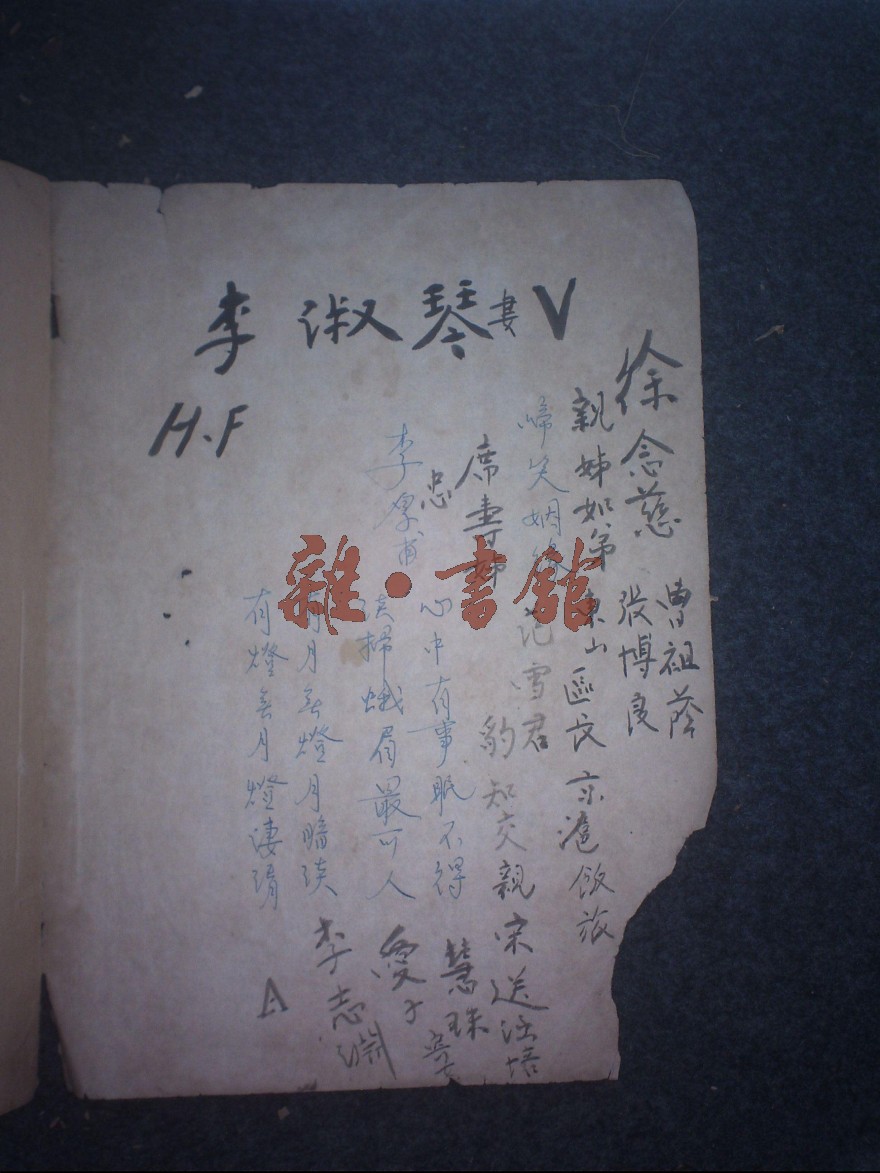 李淑琴妻 V
H.F
徐念慈
曹祖蔭
張博良
親姊如弟 東山區長 京滬飯旅
啼笑姻緣 范雪君
席壽 豹知交親 宋送法培
忠 心中有事眠不得 慧珠
李厚甫 淡掃蛾眉最可人 愛子
有月無燈月暗淡 李志淵
有燈無月燈淒清
A
雜·書館